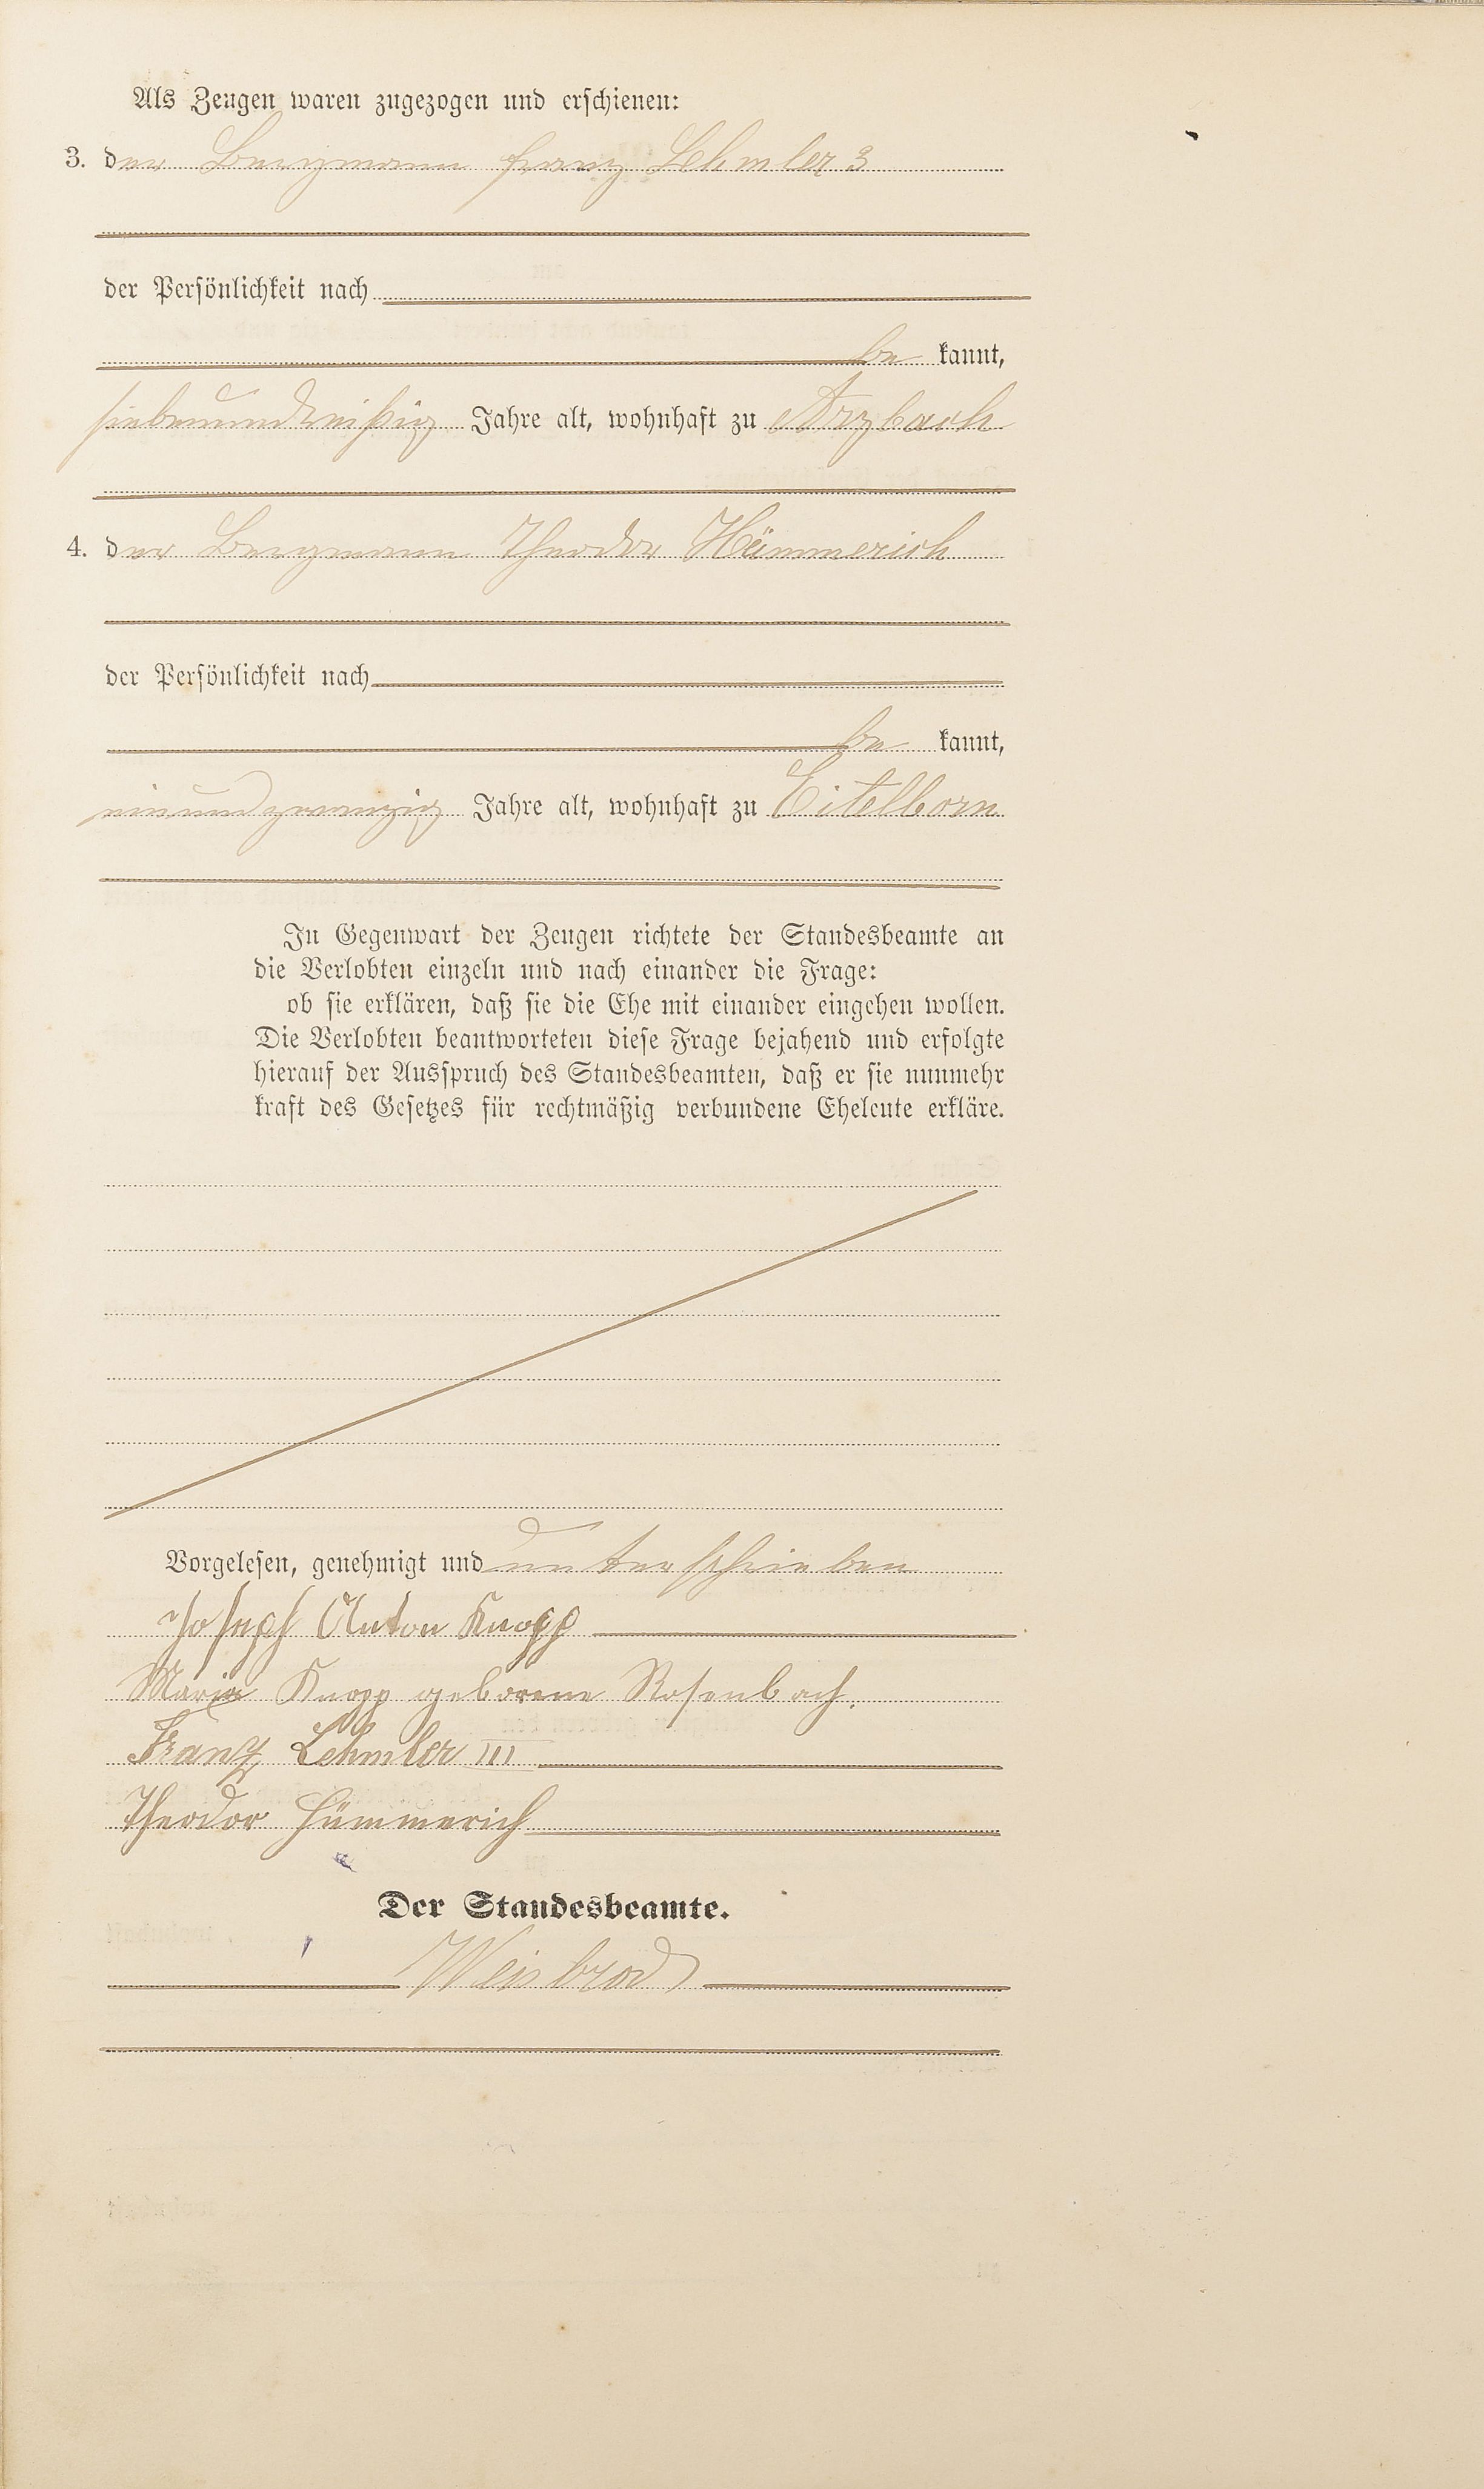 Als Zeugen waren zugezogen und erschienen:
3. der Bergmann Franz Lehmler 3
der Persönlichkeit nach
be kannt,
siebenunddreißig Jahre alt, wohnhaft zu Arzbach
4. der Bergmann Theodor Hümmerich
der Persönlichkeit nach
be kannt,
einundzwanzig Jahre alt, wohnhaft zu Eitelborn
In Gegenwart der Zeugen richtete der Standesbeamte an
die Verlobten einzeln und nach einander die Frage:
ob sie erklären, daß sie die Ehe mit einander eingehen wollen.
Die Verlobten beantworteten diese Frage bejahend und erfolgte
hierauf der Ausspruch des Standesbeamten, daß er sie nunmehr
kraft des Gesetzes für rechtmäßig verbundene Eheleute erkläre.
Vorgelesen, genehmigt und unterschrieben
Joseph Anton Knopp
Maria Knopp geborene Rosenbach.
Franz Lehmler III
Theodor Hümmerich
Der Standesbeamte.
Weisbrod